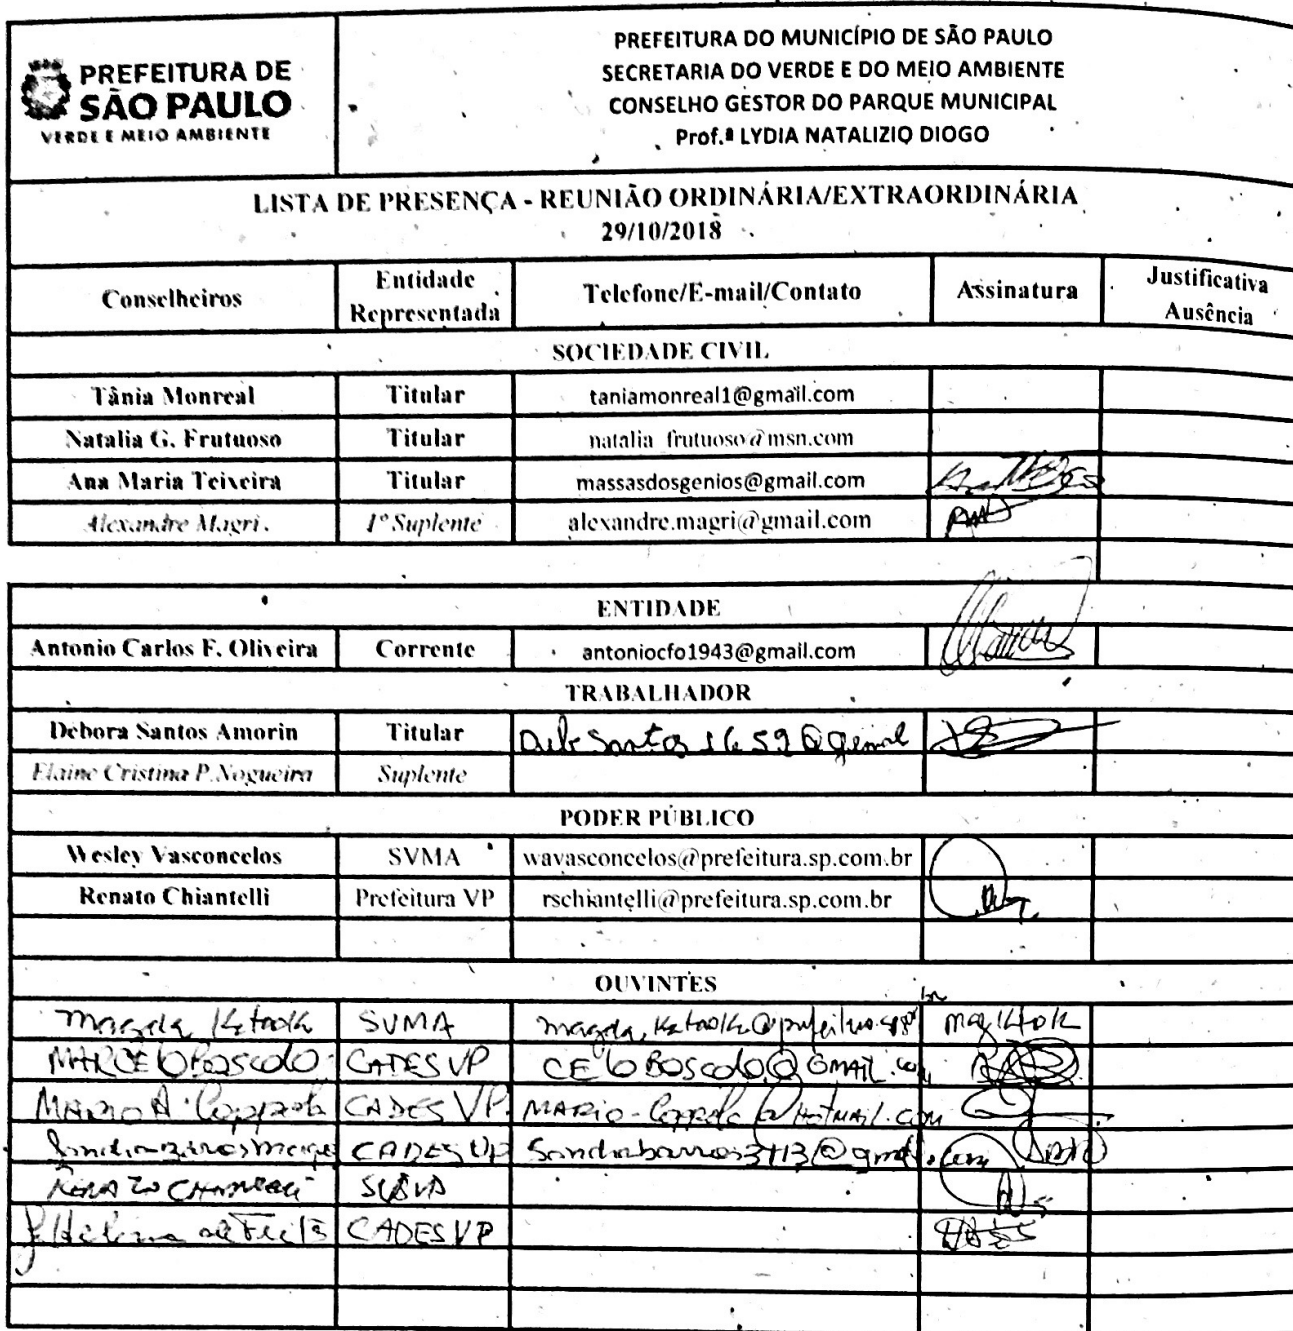 PREFEITURA DE
SÃO PAULO
VERDE E MEIO AMBIENTE
PREFEITURA DO MUNICÍPIO DE SÃO PAULO
SECRETARIA DO VERDE E DO MEIO AMBIENTE
CONSELHO GESTOR DO PARQUE MUNICIPAL
Prof.ª LYDIA NATALIZIO DIOGO
LISTA DE PRESENÇA - REUNIÃO ORDINÁRIA/EXTRAORDINÁRIA
29/10/2018
Conselheiros Entidade Representada Telefone/E-mail/Contato Assinatura Justificativa Ausência
SOCIEDADE CIVIL
Tânia Monreal Titular taniamonreal1@gmail.com
Natalia G. Frutuoso Titular natalia_frutuoso@msn.com
Ana Maria Teixeira Titular massasdosgenios@gmail.com
Alexandre Magri. 1º Suplente alexandre.magri@gmail.com
ENTIDADE
Antonio Carlos F. Oliveira Corrente antoniocfo1943@gmail.com
TRABALHADOR
Debora Santos Amorin Titular
Elaine Cristina P.Nogueira Suplente
PODER PÚBLICO
Wesley Vasconcelos SVMA wavasconcelos@prefeitura.sp.com.br
Renato Chiantelli Prefeitura VP rschiantelli@prefeitura.sp.com.br
OUVINTES
Magda SVMA
MARCELO BOSCOLO CADES VP CELOBOSCOLO@GMAIL.com
MARIO A. Coppola CADES VP. MARIO-Coppola@HOTMAIL.com
CADES VP
RENATO
Helena de CADES VP